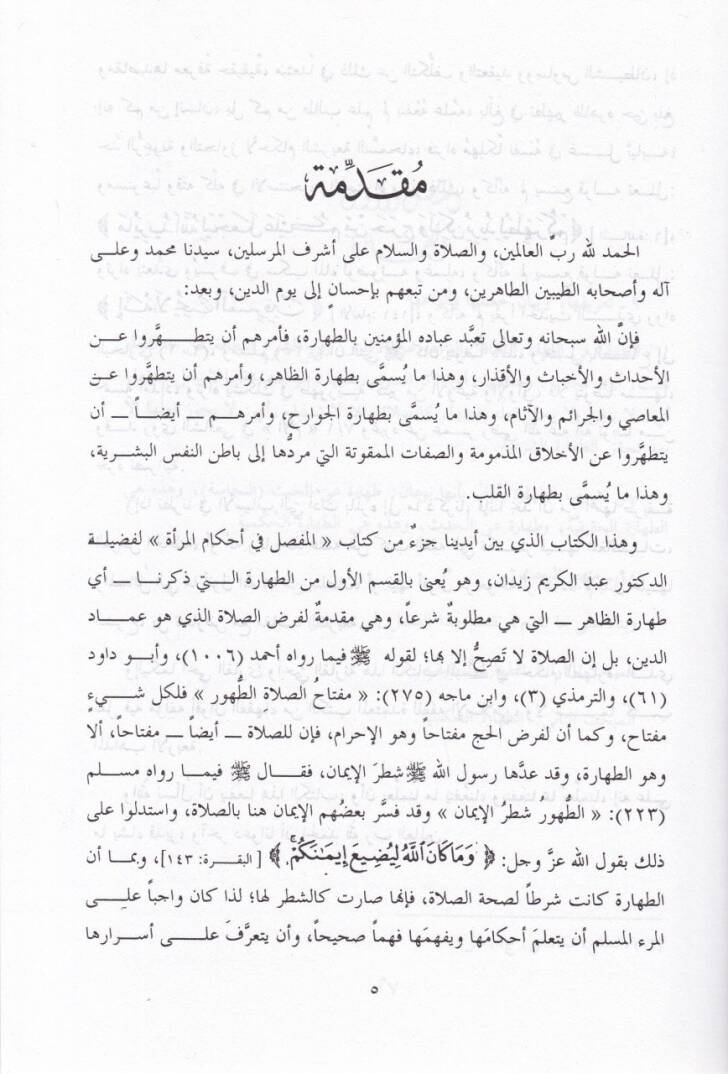 مُقَدِّمة
الحمد لله ربِّ العالمين، والصلاة والسلام على أشرف المرسلين، سيدنا محمد وعلى
آله وأصحابه الطيبين الطاهرين، ومن تبعهم بإحسانٍ إلى يوم الدين، وبعد:
فإنَّ الله سبحانه وتعالى تعبَّد عباده المؤمنين بالطهارة، فأمرهم أن يتطهَّروا عن
الأحداث والأخباث والأقذار، وهذا ما يُسمَّى بطهارة الظاهر، وأمرهم أن يتطهَّروا عن
المعاصي والجرائم والآثام، وهذا ما يُسمَّى بطهارة الجوارح، وأمرهم ــ أيضاً ــ أن
يتطهَّروا عن الأخلاق المذمومة والصفات الممقوتة التي مردُّها إلى باطن النفس البشرية،
وهذا ما يُسمَّى بطهارة القلب.
وهذا الكتاب الذي بين أيدينا جزءٌ من كتاب « المفصل في أحكام المرأة » لفضيلة
الدكتور عبد الكريم زيدان، وهو يُعنى بالقسم الأول من الطهارة التي ذكرنا ــ أي
طهارة الظاهر ــ التي هي مطلوبةٌ شرعاً، وهي مقدمةٌ لفرض الصلاة الذي هو عماد
الدين، بل إن الصلاة لا تَصِحُّ إلا بها؛ لقوله ﷺ فيما رواه أحمد (١٠٠٦)، وأبو داود
(٦١)، والترمذي (٣)، وابن ماجه (٢٧٥): « مفتاحُ الصلاة الطُّهور » فلكل شيءٍ
مفتاح، وكما أن لفرض الحج مفتاحاً وهو الإحرام، فإن للصلاة ــ أيضاً ــ مفتاحاً، ألا
وهو الطهارة، وقد عدَّها رسول الله ﷺ شطرَ الإيمان، فقال ﷺ فيما رواه مسلم
(٢٢٣): « الطُّهورُ شطرُ الإيمان » وقد فسَّر بعضُهم الإيمان هنا بالصلاة، واستدلوا على
ذلك بقول الله عزَّ وجل: ﴿ وَمَا كَانَ ٱللَّهُ لِيُضِيعَ إِيمَٰنَكُمْ ﴾ [البقرة: ١٤٣]، وبما أن
الطهارة كانت شرطاً لصحة الصلاة، فإنها صارت كالشطر لها؛ لذا كان واجباً على
المرء المسلم أن يتعلمَ أحكامَها ويفهمَها فهماً صحيحاً، وأن يتعرَّفَ على أسرارها
٥